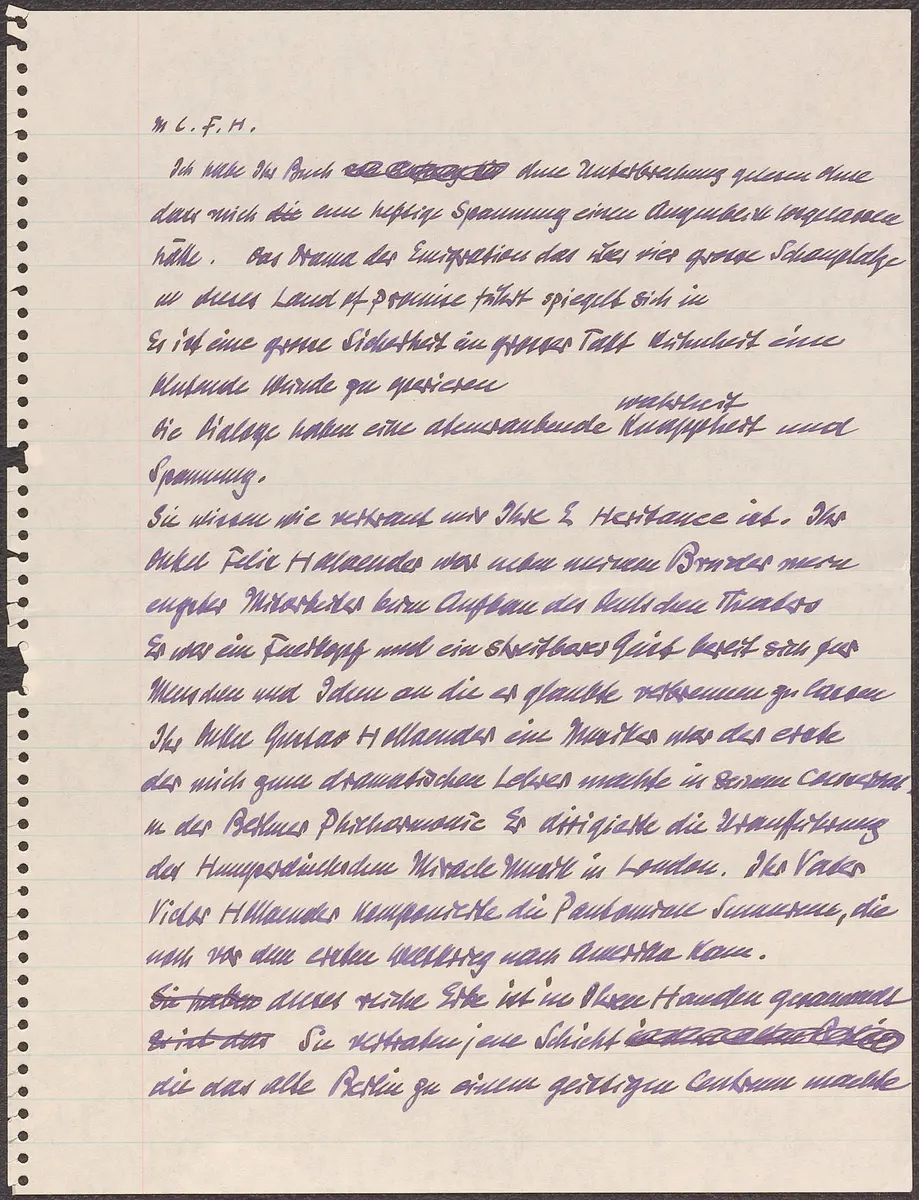 M L. F. H.
Ich habe Ihr Buch ohne Unterbrechung gelesen ohne
dass mich die eine heftige Spannung einen Augenblick losgelassen
hätte. Das Drama der Emigration das über vier grosse Schauplätze
in dieses Land of promise führt spiegelt sich in
Es ist eine grosse Sicherheit ein grosser Takt Kühnheit eine
blutende Wunde zu operieren
wahrheit
Die Dialoge haben eine atemraubende Knappheit und
Spannung.
Sie wissen wie vertraut mir Ihre Heritance ist. Ihr
Onkel Felix Hollaender war neben meinem Bruder mein
engster Mitarbeiter beim Aufbau des deutschen Theaters
Er war ein und ein streitbarer Geist bereit sich für
Menschen und Ideen an die er glaubte verbrennen zu lassen
Ihr Onkel Gustav Hollaender ein Musiker war der erste
der mich zum dramatischen Lehrer machte in seinem
in der Berliner Philharmonie Er dirigierte die Uraufführung
der Humperdinckschen Miracle Musik in London. Ihr Vater
Victor Hollaender komponierte die Pantomime Sumurun, die
noch vor dem ersten Weltkrieg nach Amerika kam.
Sie haben dieses reiche Erbe ist in Ihren Händen gesammelt
Es ist das Sie vertraten jene Schicht
die das alte Berlin zu einem geistigen Centrum machte